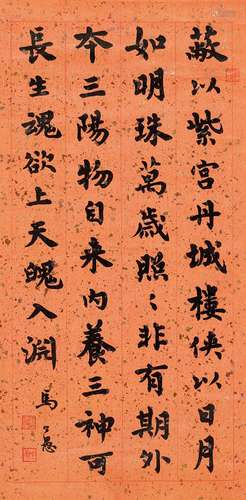 蔽以紫宫丹城樓俠以日月
如明珠萬歲照〻非有期外
本三陽物自来内養三神可
長生魂欲上天魄入淵
馬公愚